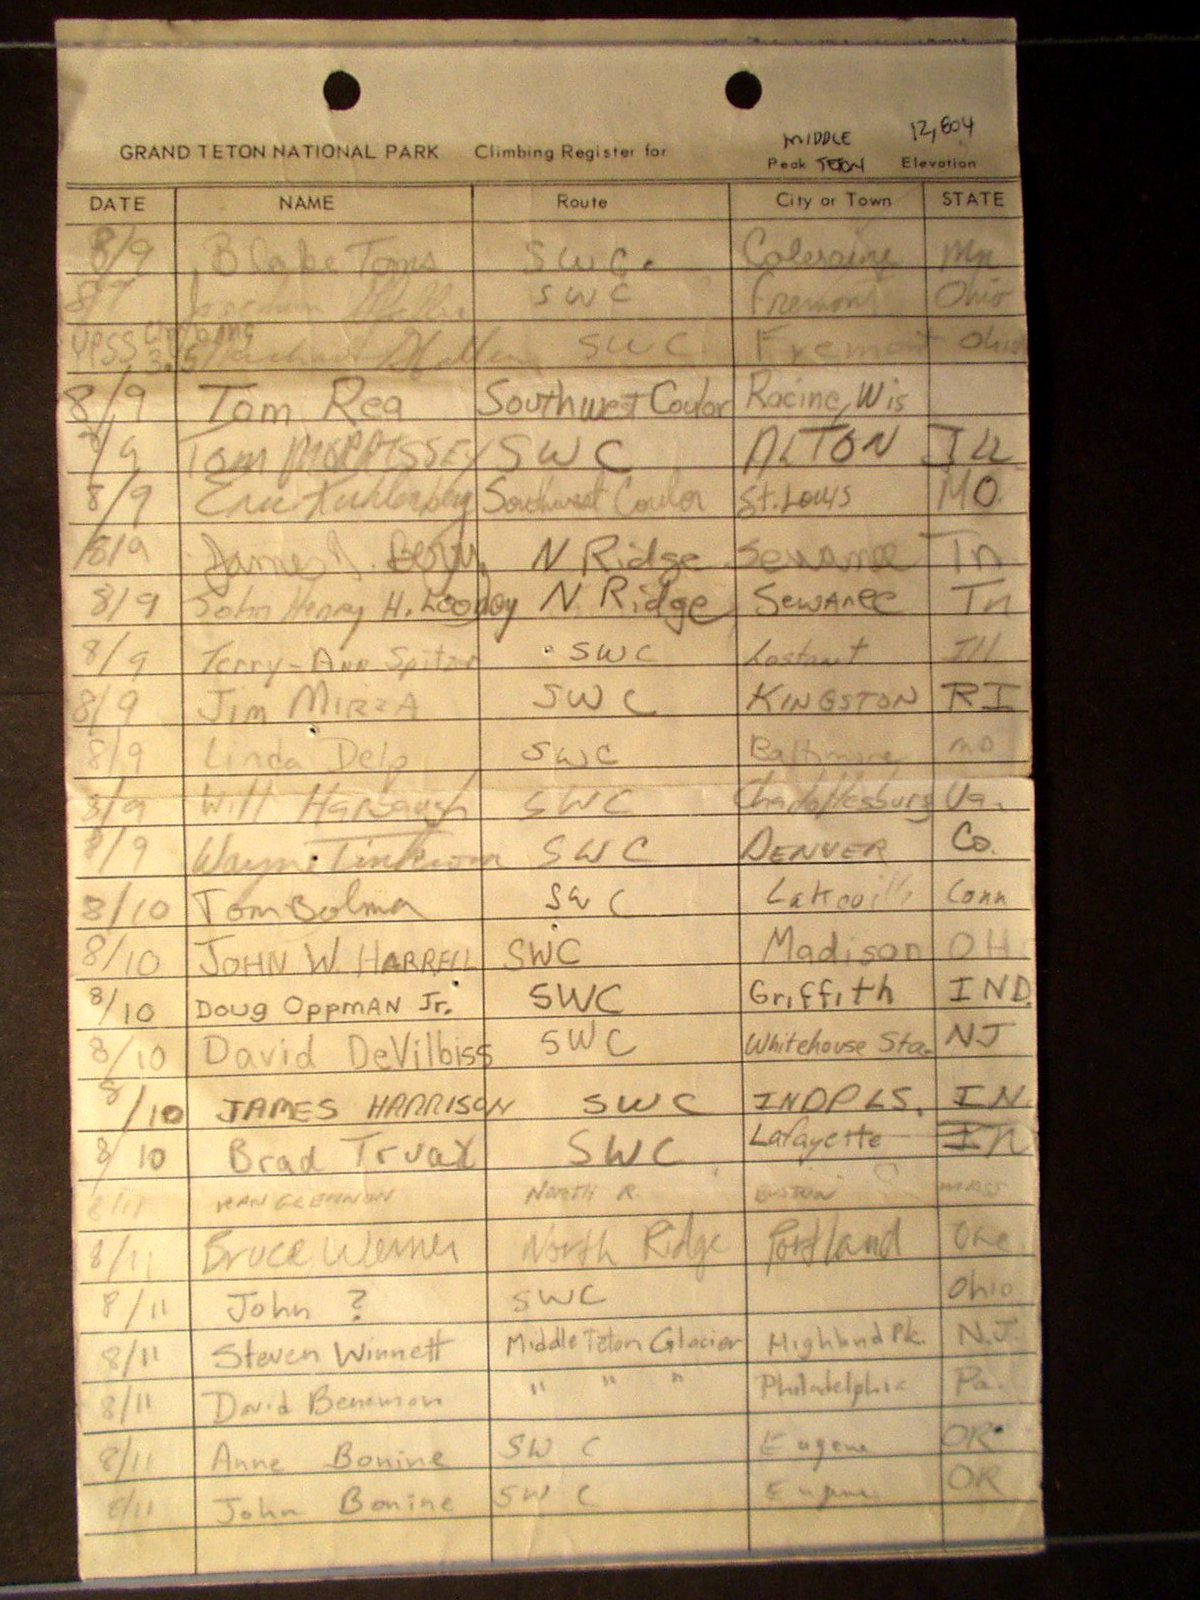 MIDDLE 12,804
GRAND TETON NATIONAL PARK Climbing Register for Peak TETON Elevation
DATE NAME Route City or Town STATE
8/9 Blake Toms SWC. Coleraine Mn
8/9 SWC Fremont Ohio
SWC Fremont Ohio
8/9 Tom Rea Southwest Couloir Racine, Wis
8/9 Tom MORRISSEY SWC ALTON ILL
8/9 Eric Southwest Couloir St. Louis MO.
8/9 James N Ridge Sewanee Tn
8/9 John Henry H. Looney N. Ridge Sewanee Tn
8/9 Terry-Ann Spitzer SWC Lostant Ill
8/9 Jim MIRZA SWC KINGSTON RI
8/9 Linda Delp SWC Baltimore MD
8/9 Will Harbaugh SWC Charlottesburg Va.
8/9 Wayne SWC DENVER Co.
8/10 Tom Bolma SWC Lakeville Conn
8/10 JOHN W. HARRELL SWC Madison OH
8/10 DOUG OPPMAN Jr. SWC Griffith IND.
8/10 David DeVilbiss SWC Whitehouse Sta. NJ
8/10 JAMES HARRISON SWC INDPLS. IN.
8/10 Brad Truax SWC Lafayette IN
8/11 NORTH R. BOSTON MASS
8/11 Bruce Werner North Ridge Portland Ore
8/11 John ? SWC Ohio
8/11 Steven Winnett Middle Teton Glacier Highland Pk. N.J.
8/11 David Benenson " " " Philadelphia Pa.
8/11 Anne Bonine SWC Eugene OR
8/11 John Bonine SWC Eugene OR